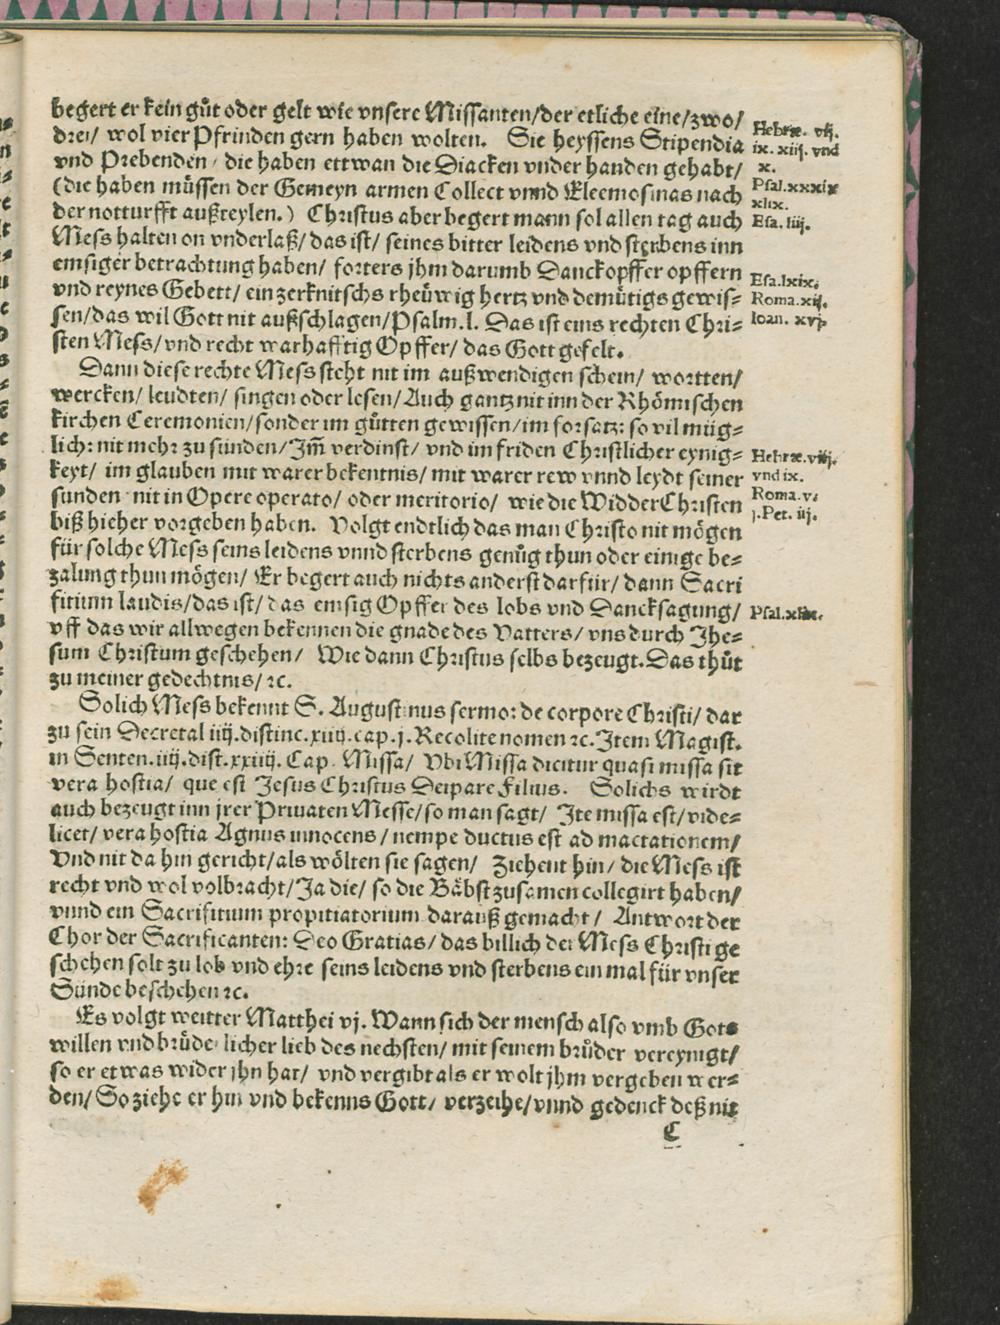 begert er kein gůt oder gelt wie vnsere Missanten/der etliche eine/zwo/
drei/ wol vier Pfrinden gern haben wolten. Sie heyssens Stipendia
vnd Prebenden/ die haben ettwan die Diacken vnder handen gehabt/
(die haben müssen der Gemeyn armen Collect vnnd Eleemosinas nach
der notturfft außteylen.) Christus aber begert mann sol allen tag auch
Mess halten on vnderlaß/ das ist/ seines bitter leidens vnd sterbens inn
emsiger betrachtung haben/ forters jhm darumb Danckopffer opffern
vnd reynes Gebett/ ein zerknitschs rheüwig hertz vnd demütigs gewis=
sen/das wil Gott nit außschlagen/Psalm.l. Das ist eins rechten Chri=
sten Mess/vnd recht warhafftig Opffer/ das Gott gefelt.
Hebræ. vij.
ix. xiij. vnd
x.
Psal.xxxix
xlix.
Esa. liij.
Esa.lxix.
Roma.xij.
Ioan. xvj.
Dann diese rechte Mess steht nit im außwendigen schein/ wortten/
wercken/ leudten/ singen oder lesen/Auch gantz nit inn der Rhömischen
kirchen Ceremonien/sonder im gütten gewissen/im forsatz: so vil müg=
lich: nit mehr zu sünden/Im̃ verdinst/ vnd im friden Christlicher eynig=
keyt/ im glauben mit warer bekentnis/ mit warer rew vnnd leydt seiner
sunden nit in Opere operato/ oder meritorio/ wie die WidderChristen
biß hieher vorgeben haben. Volgt endtlich das man Christo nit mögen
für solche Mess seins leidens vnnd sterbens genůg thun oder einige be=
zalung thun mögen/ Er begert auch nichts anderst darfür/ dann Sacri
fitium laudis/das ist/ das emsig Opffer des lobs vnd Dancksagung/
vff das wir allwegen bekennen die gnade des Vatters/ vns durch Jhe=
sum Christum geschehen/ Wie dann Christus selbs bezeugt. Das thůt
zu meiner gedechtnis/ ꝛc.
Hebræ.viij.
vnd ix.
Roma.v.
j.Pet. iij.
Psal.xlix.
Solich Mess bekennt S. Augustinus sermo: de corpore Christi/ dar
zu sein Decretal iiij.distinc.xiiij.cap.j. Recolite nomen ꝛc. Item Magist.
in Senten.iiij.dist.xxiiij. Cap. Missa/ Vbi Missa dicitur quasi missa sit
vera hostia/ que est Jesus Christus Deipare Filius. Solichs wirdt
auch bezeugt inn jrer Priuaten Messe/so man sagt/ Ite missa est/vide=
licet/ vera hostia Agnus innocens/ nempe ductus est ad mactationem/
Vnd nit da hin gericht/als wölten sie sagen/ Ziehent hin/ die Mess ist
recht vnd wol volbracht/Ja die/ so die Bäbst zusamen collegirt haben/
vnnd ein Sacrifitium propitiatorium darauß gemacht/ Antwort der
Chor der Sacrificanten: Deo Gratias/ das billich der Mess Christi ge
schehen solt zu lob vnd ehre seins leidens vnd sterbens ein mal für vnser
Sünde beschehen ꝛc.
Es volgt weitter Matthei vj. Wann sich der mensch also vmb Gots
willen vnd brüderlicher lieb des nechsten/ mit seinem brůder vereynigt/
so er etwas wider jhn hat/ vnd vergibt als er wolt jhm vergeben wer=
den/ So ziehe er hin vnd bekenns Gott/ verzeihe/vnnd gedenck deß nit
C